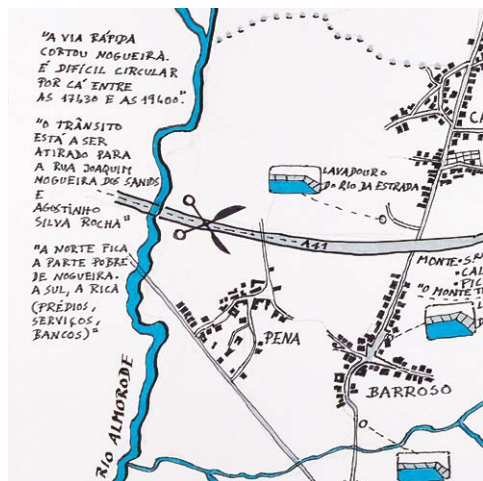 "A VIA RÁPIDA
CORTOU NOGUEIRA.
É DIFÍCIL CIRCULAR
POR CÁ ENTRE
AS 17H30 E AS 19H00."
"O TRÂNSITO
ESTÁ A SER
ATIRADO PARA
A RUA JOAQUIM
NOGUEIRA DOS SANDS
E
AGOSTINHO
SILVA ROCHA"
"A NORTE FICA
A PARTE POBRE
DE NOGUEIRA.
A SUL, A RICA
(PRÉDIOS,
SERVIÇOS,
BANCOS)"
CA
LAVADOURO
DO RIO DA ESTRADA
A41
MONTE
"O MONTE
PENA
BARROSO
RIO ALMORODE